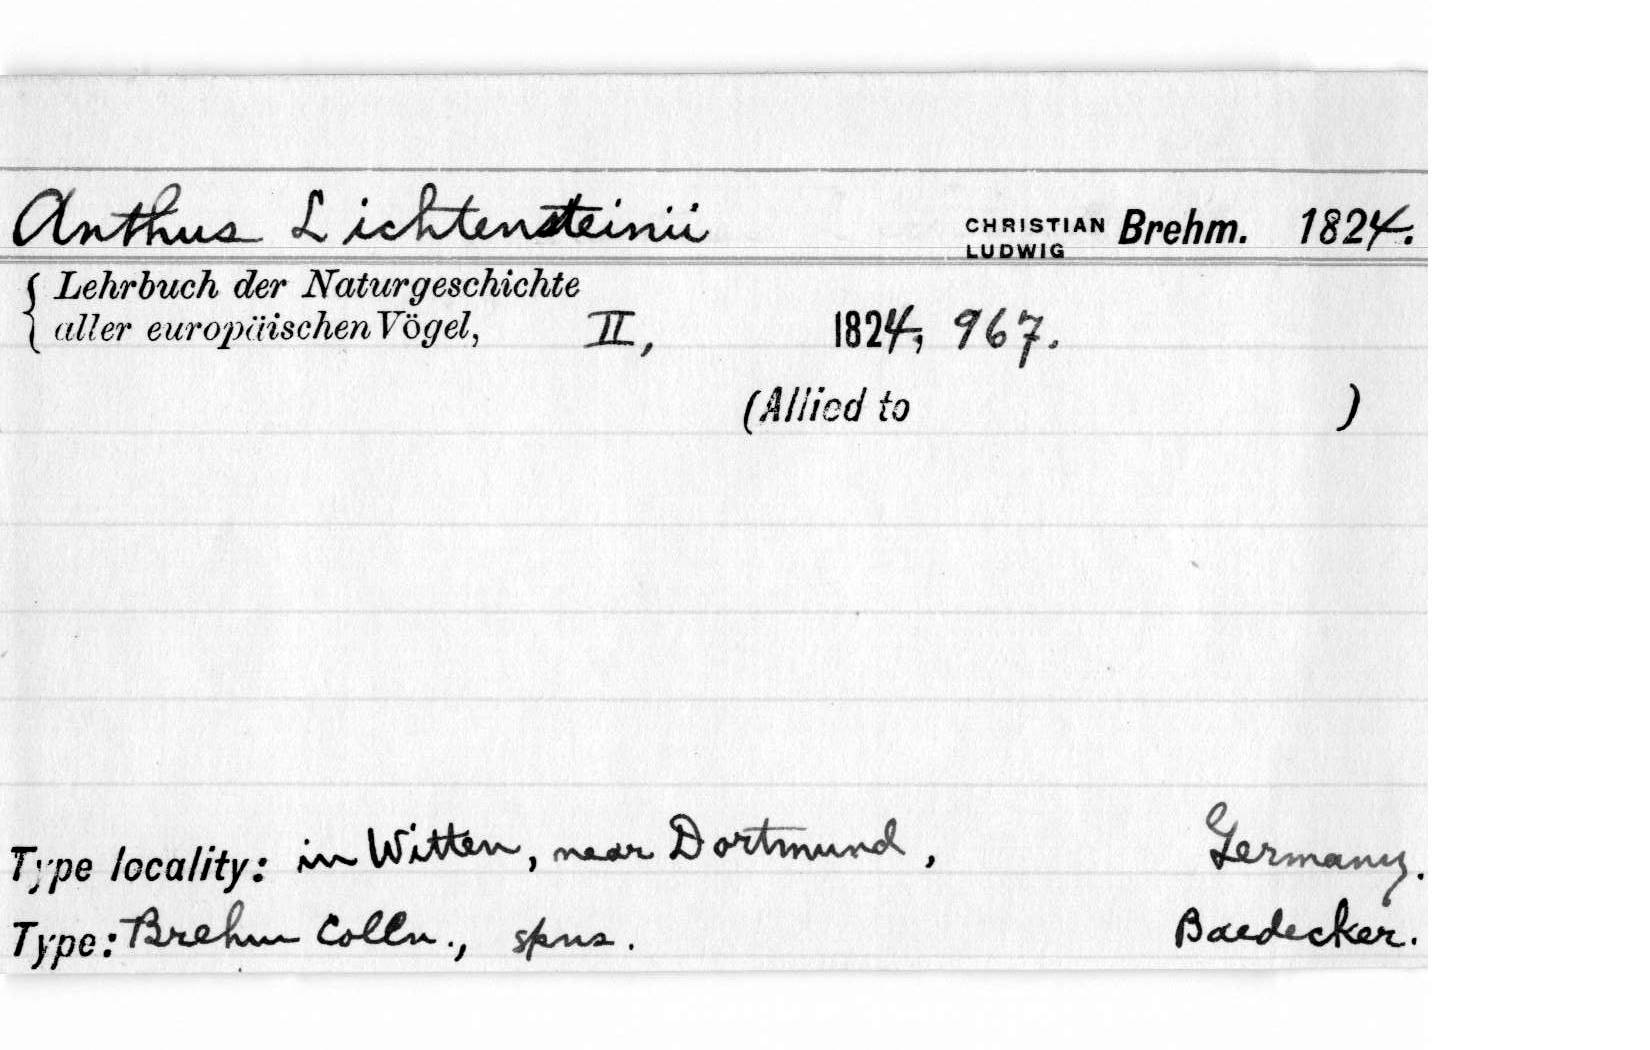 Anthus Lichtensteinii CHRISTIAN LUDWIG Brehm. 1824.
{ Lehrbuch der Naturgeschichte
aller europäischen Vögel, II, 1824, 967.
(Allied to )
Type locality: in Witten, near Dortmund, Germany.
Type: Brehm Colln., spns. Baedecker.